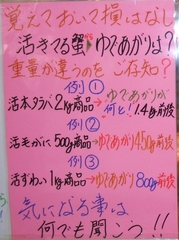 覚えておいて損はなし
活きてる蟹▶ゆであがりは?
重量が違うのをご存知?
例①
活本タラバ2kg商品→ゆであがりが何と!1.4kg前後
例②
活毛がに500g商品→ゆであがり450g前後
例③
活ずわい1kg商品→ゆであがり800g前後
気になる事は
何でも聞こう!!